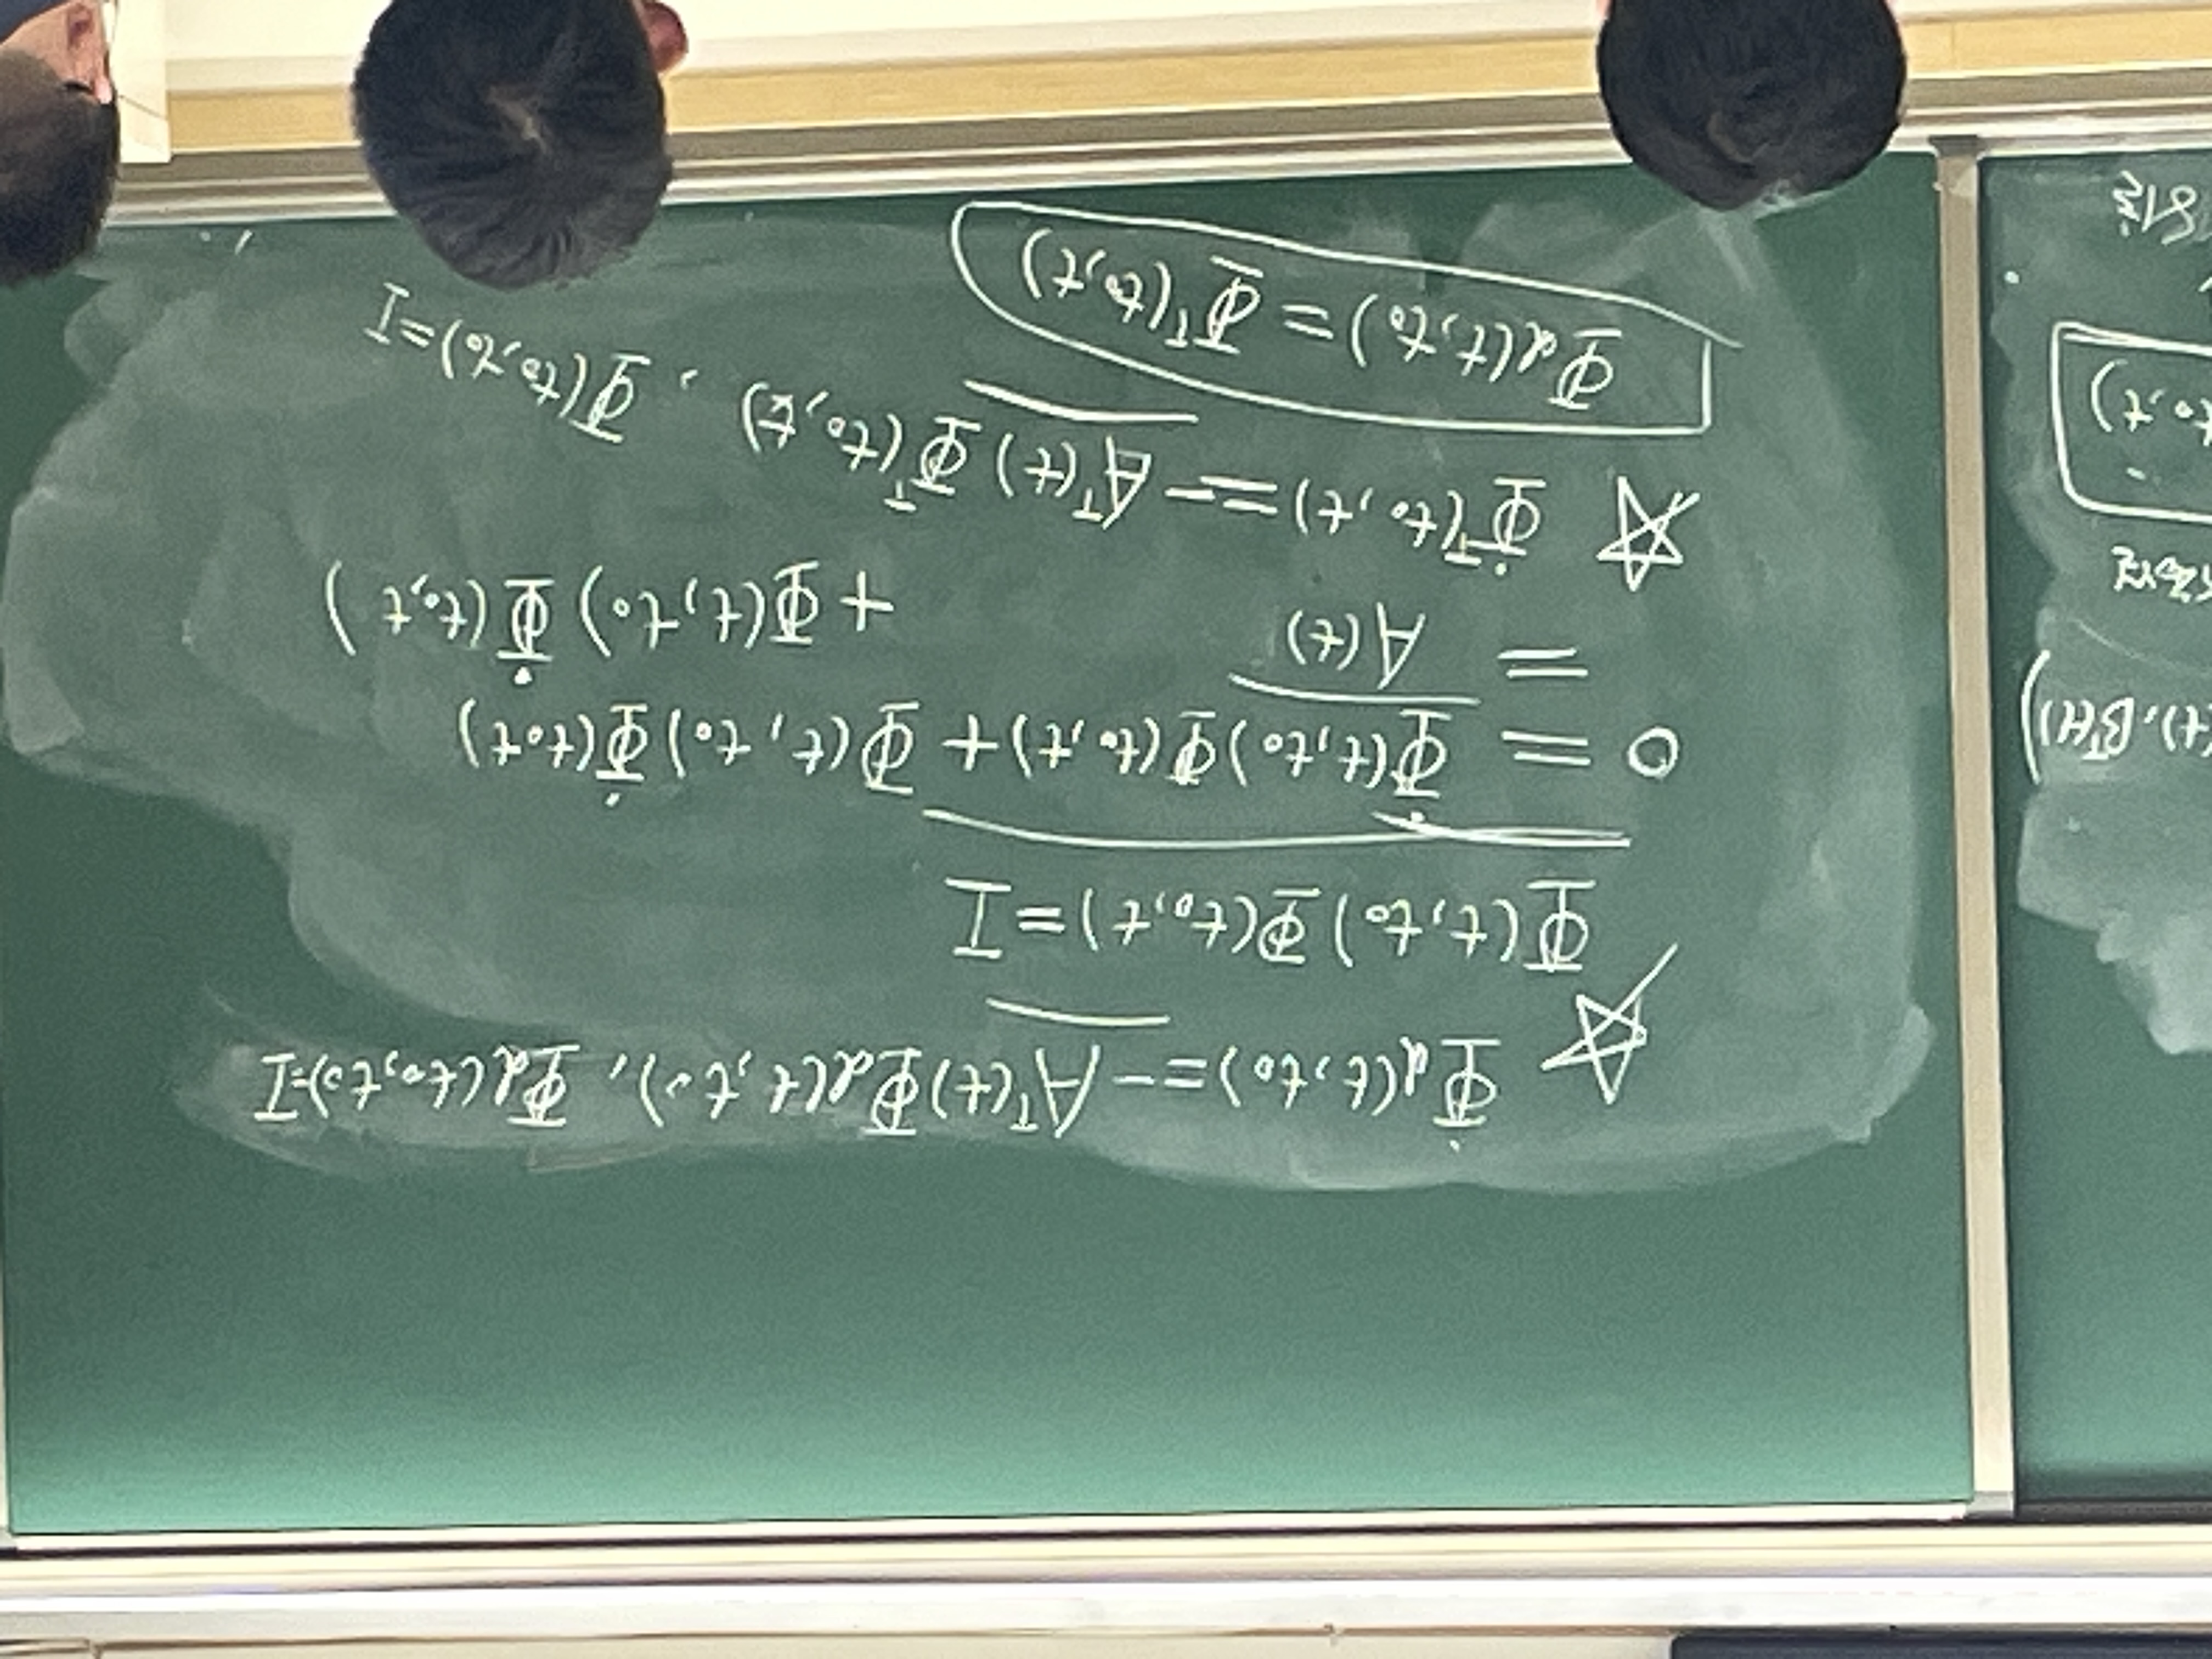 (t), Bᵀ(t))
t₀, t)
☆ Φ̇d(t, t₀) = -Aᵀ(t)Φd(t, t₀), Φd(t₀, t₀)=I
Φ(t, t₀) Φ(t₀, t) = I
0 = Φ̇(t, t₀)Φ(t₀, t) + Φ(t, t₀) Φ̇(t₀t)
= A(t) + Φ(t, t₀) Φ̇(t₀, t)
☆ Φ̇ᵀ(t₀, t) = -Aᵀ(t) Φᵀ(t₀, t), Φ(t₀, t₀) = I
Φd(t, t₀) = Φᵀ(t₀, t)